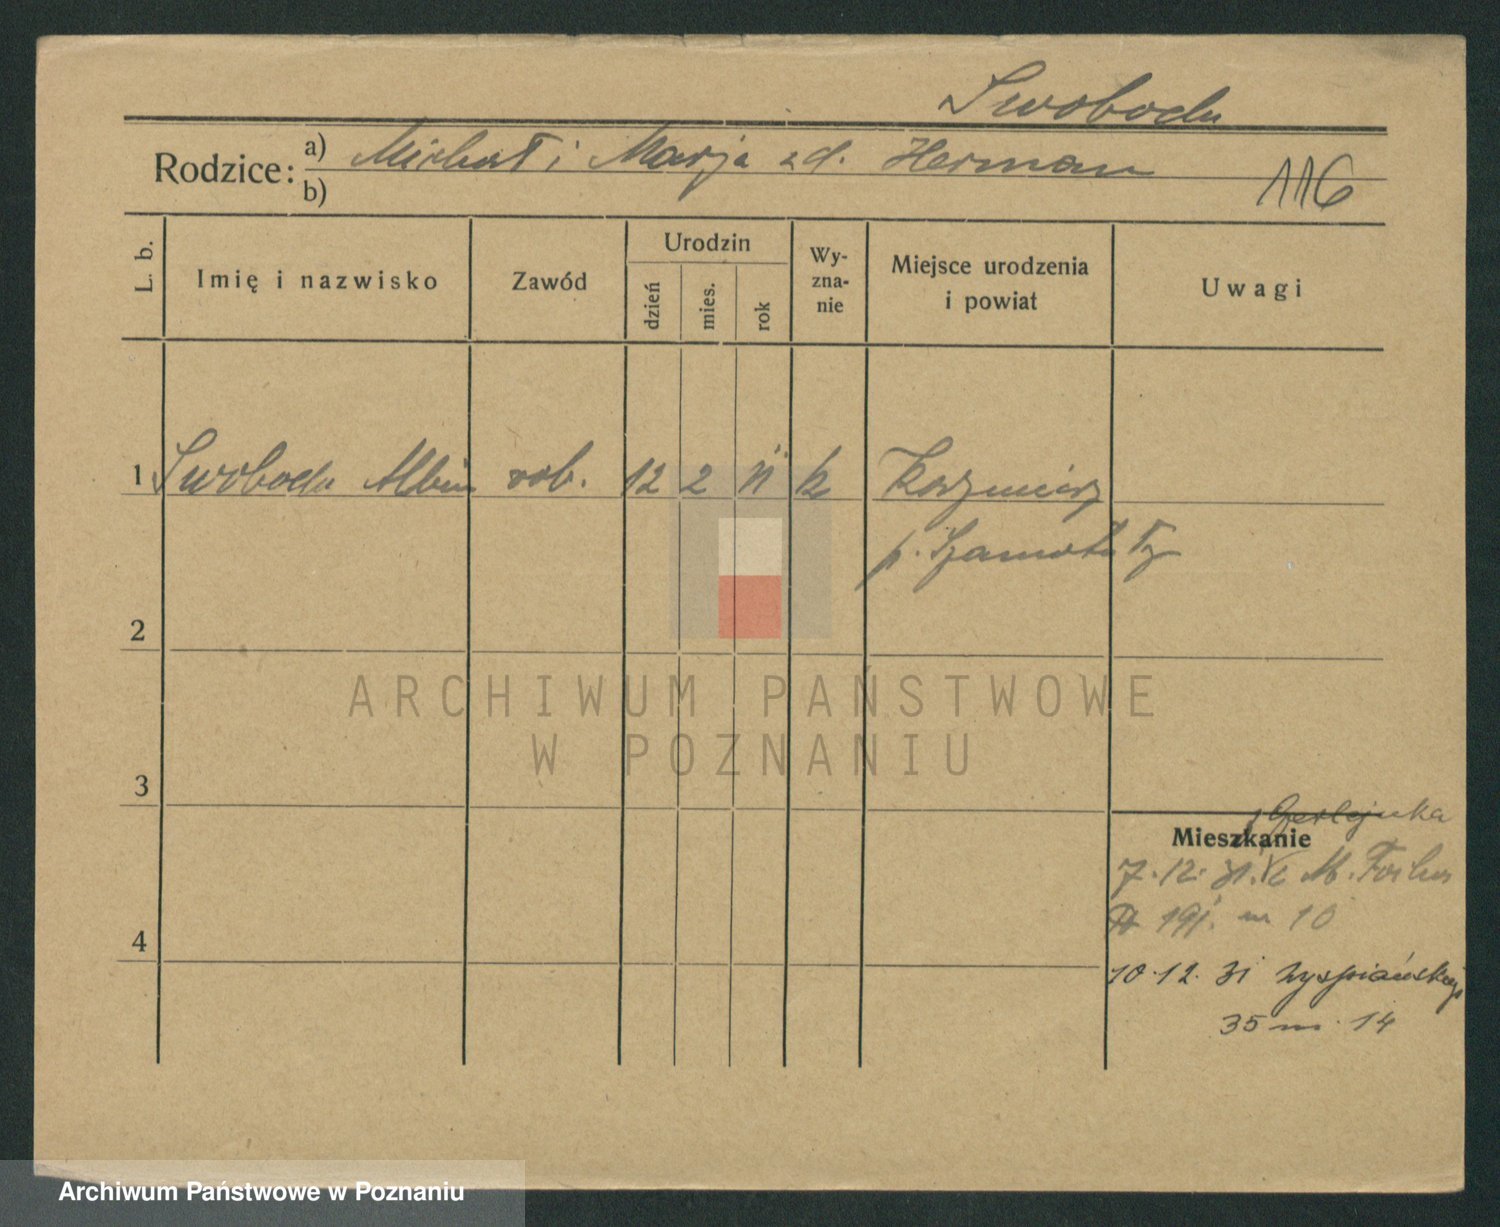 Swoboda
Rodzice: a) Michał i Marja zd. Herman
b)
116
L. b. Imię i nazwisko Zawód Urodzin dzień mies. rok Wyznanie Miejsce urodzenia i powiat Uwagi
1 Swoboda Albin rob. 12 2 11 k Kazmierz
p. Szamotuły
2
3
Mieszkanie
7.12.31. M.
19 m 10
4
10.12.31 Wyspiańskiego
35 m. 14
ARCHIWUM PAŃSTWOWE
W POZNANIU
Archiwum Państwowe w Poznaniu